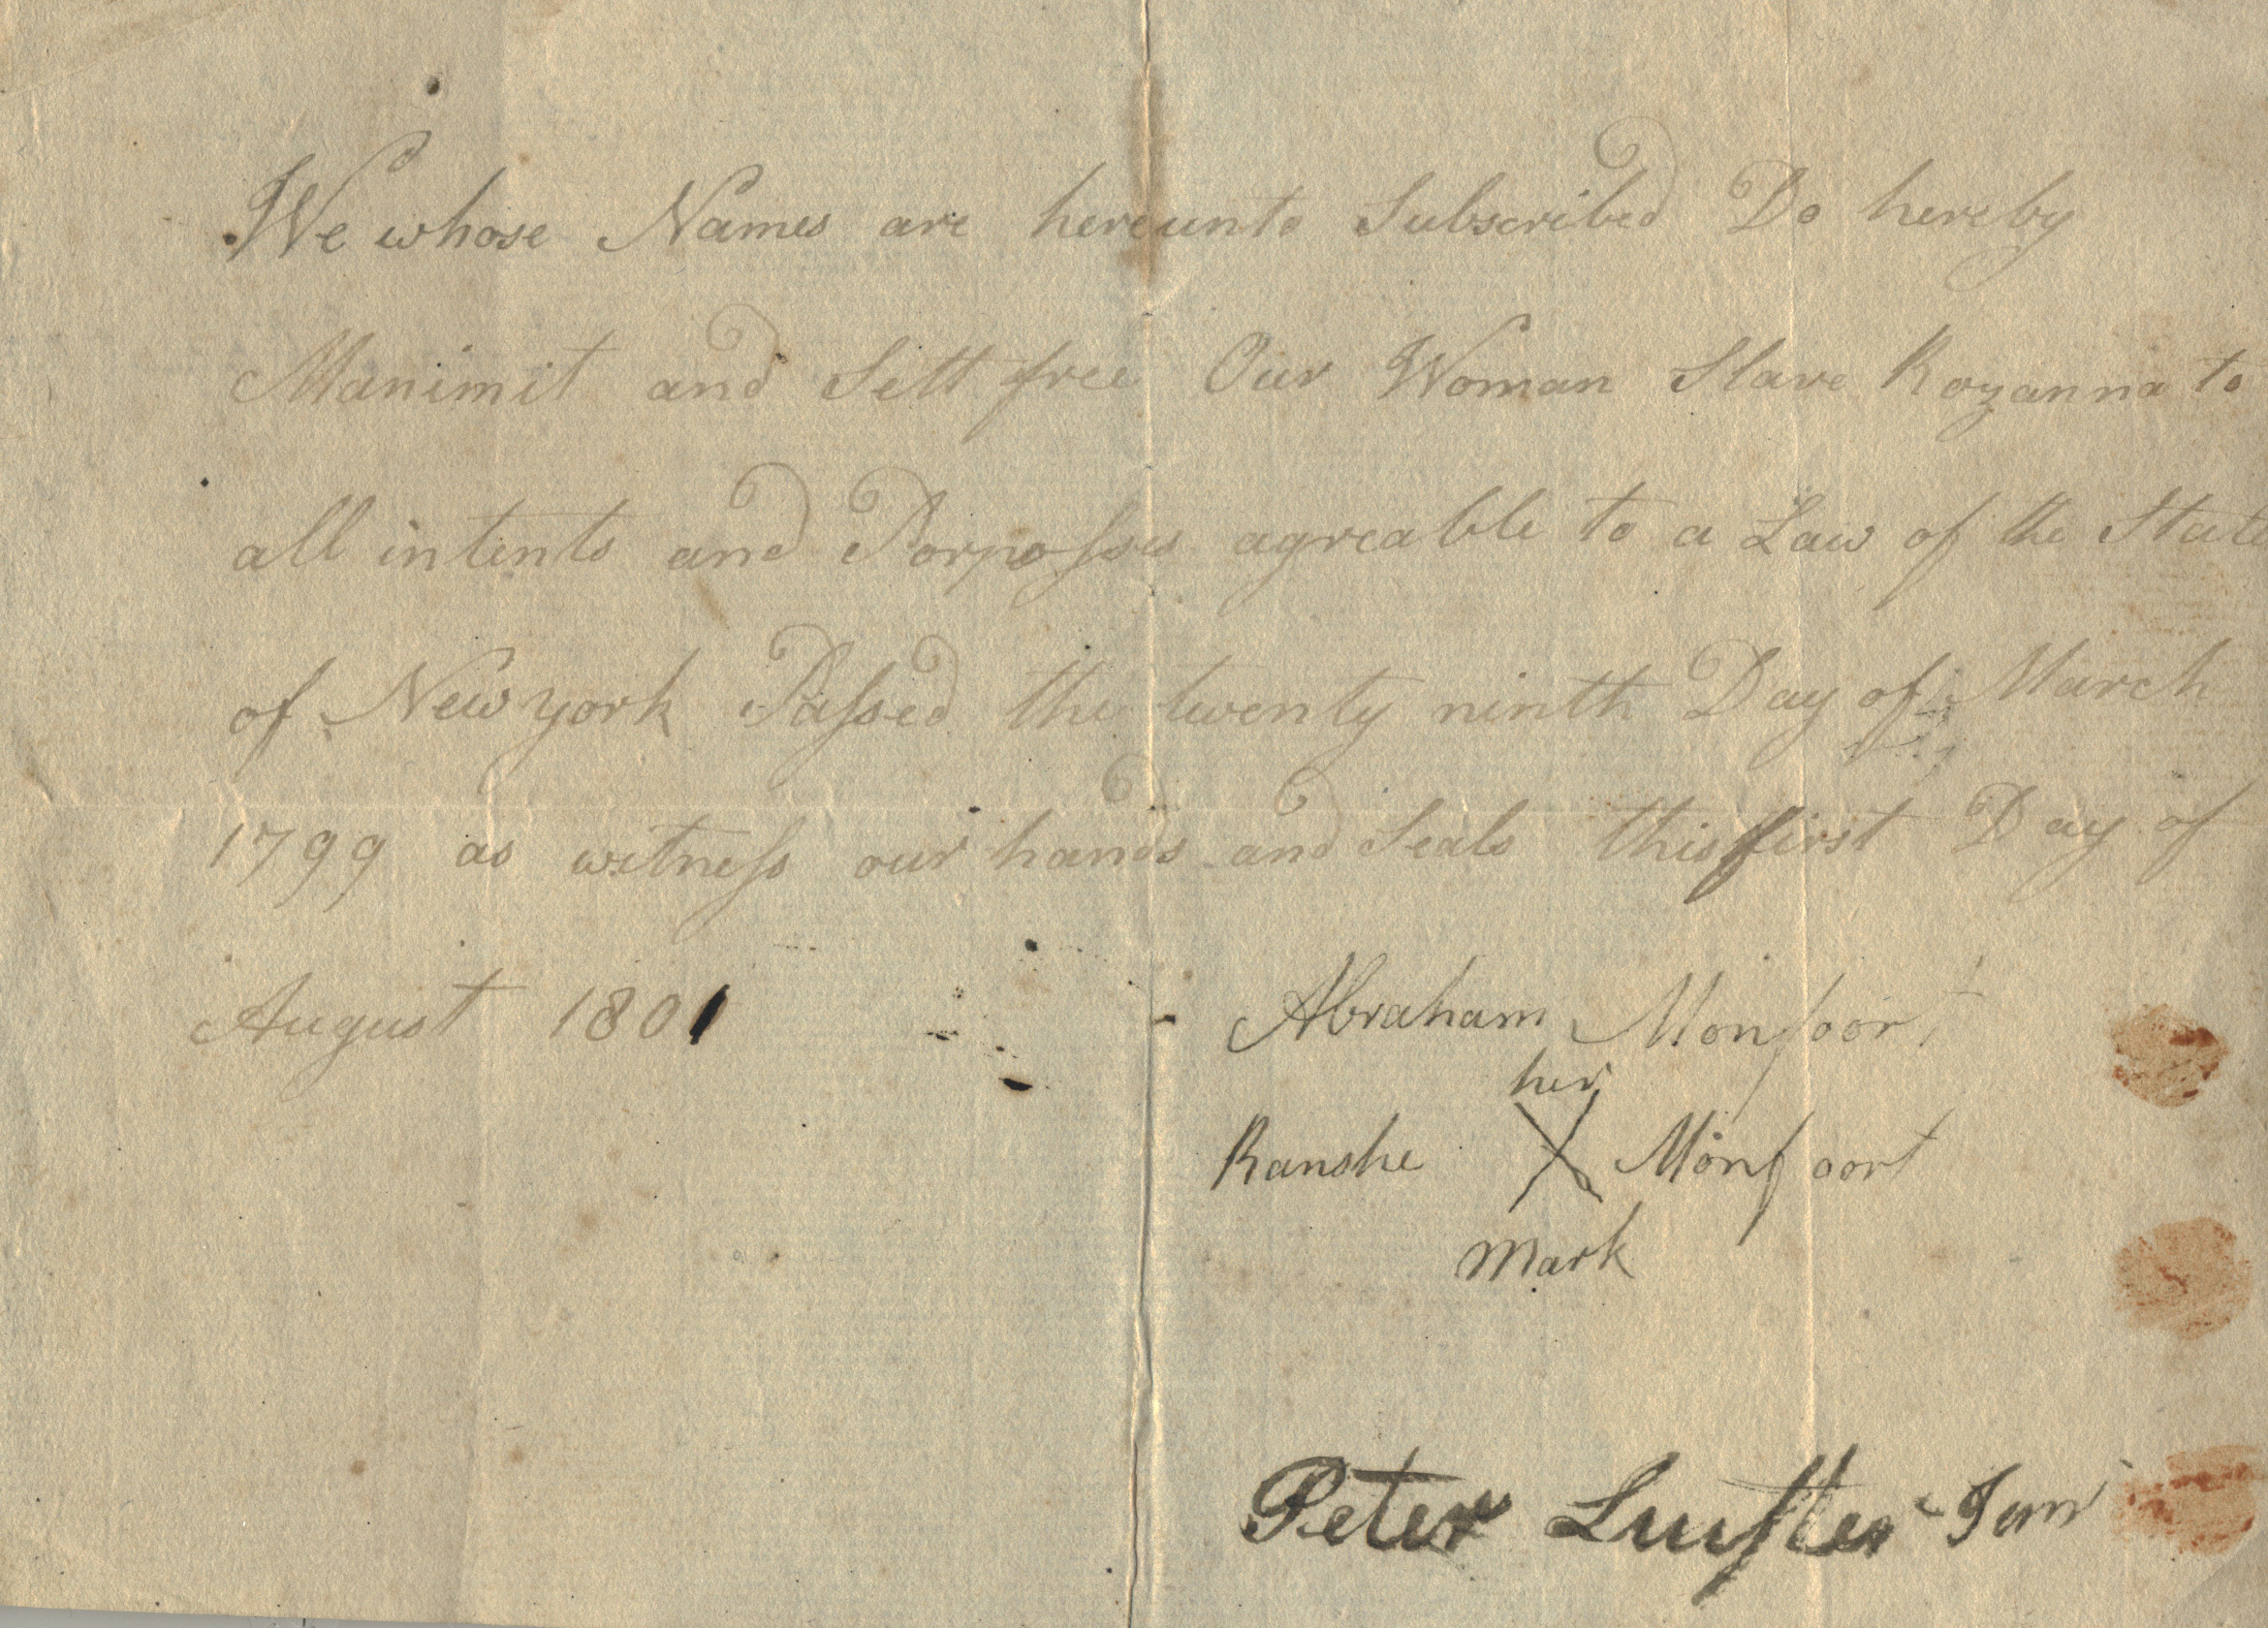 We whose Names are hereunto Subscribed Do hereby
Manimit and Sett free Our Woman Slave Rozanna to
all intents and Porposses agreable to a Law of the State
of New york Passed the twenty ninth Day of March
1799 as witness our hands and Seals this first Day of
August 1801
Abraham Monfoort
her
Ranshe X Monfoort
mark
Peter Luister Jun